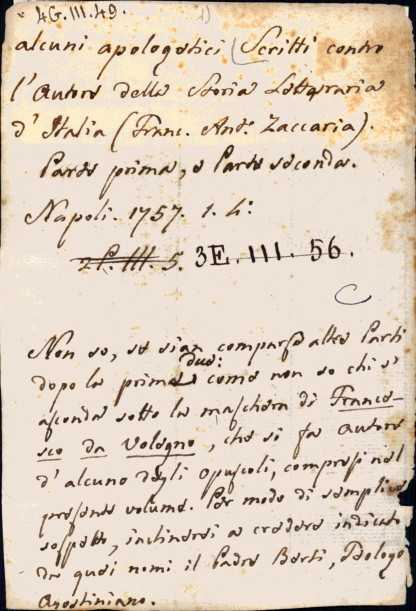 4G.III.49. 1)
alcuni apologetici Scritti contro
l'Autore della Storia Letteraria
d'Italia (Franc. Ant. Zaccaria).
Parte prima, e Parte seconda.
Napoli. 1757. t. 4:
3E.III.56.
Non so, se sian comparse altre Parti
dopo la prima due: come non so chi s'
asconda sotto la maschera di France-
sco da Vologno, che si fa Autore
d'alcuno degli opuscoli, compresi nel
presente volume. Per modo di semplice
sospetto, inclinerei a credere indicato
da quei nomi il Padre Berti, Teologo
Agostiniano.